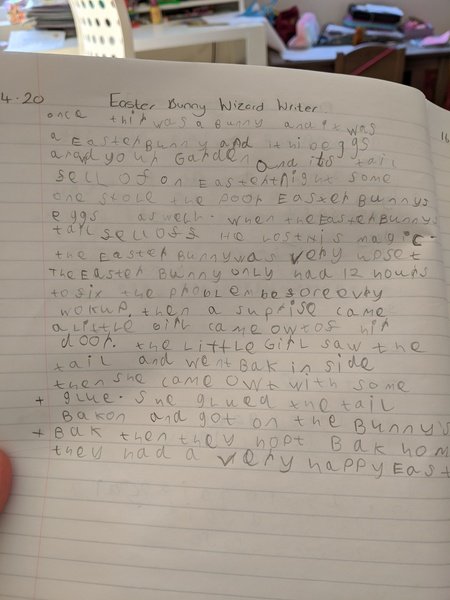 4.20 Easter Bunny Wizard Writer
once thir was a Bunny and it was
a EasterBunny and it hid eggs
arawd your Garden and its tail
sell of on Easternight some
one stole the poor Easter Bunnys
eggs as well. when the EasterBunnys
tail sell oss He lost his magic.
the Easter Bunny was very upset
The Easter Bunny only had 12 hours
to six the problem besore evry
wokup. then a suprise came
a little Girl came owt of hir
door. the Little Girl saw the
tail and went Bak in side
then she came owt with some
+ glue. She glued the tail
Bakon and got on the Bunny's
+ Bak then they hopt Bak hom
they had a very happy East